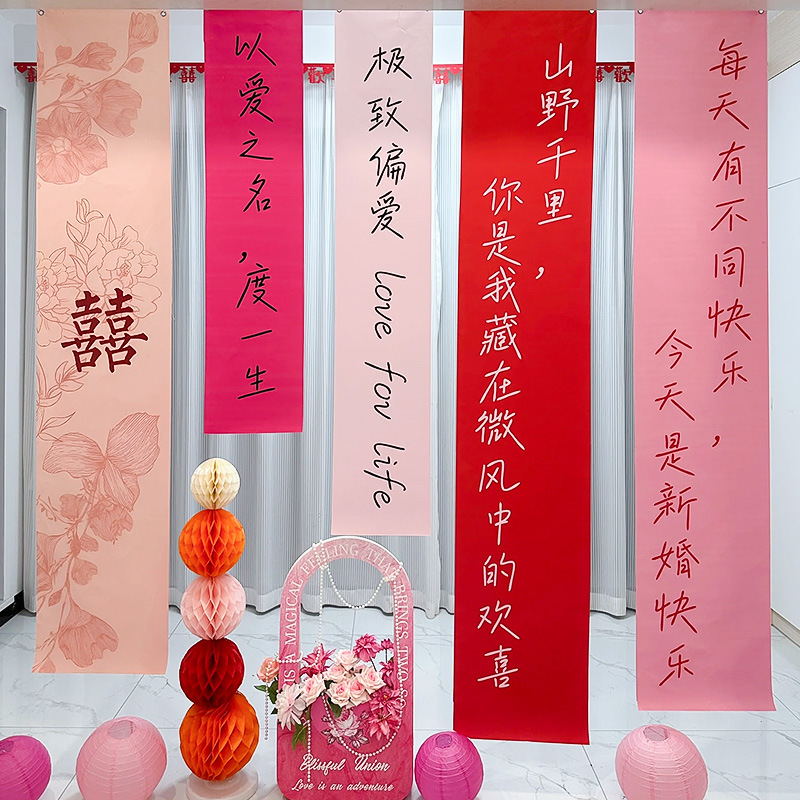 囍
以爱之名,度一生
极致偏爱 love for life
山野千里
你是我藏在微风中的欢喜
每天有不同快乐,
今天是新婚快乐
IS A MAGICAL FEELING THAT BRINGS TWO SO
Blissful Union
Love is an adventure
囍
歡
囍
歡
囍
歡